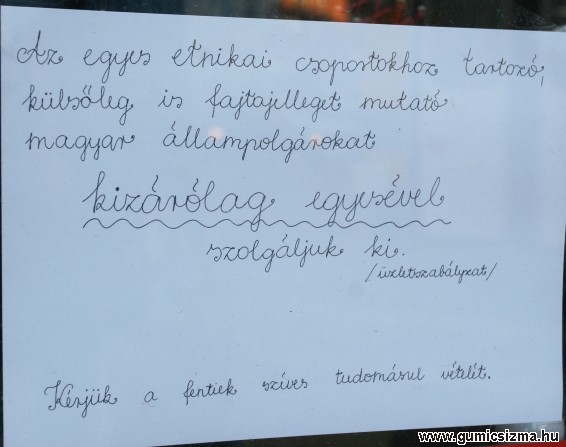 Az egyes etnikai csoportokhoz tartozó,
külsőleg is fajtajelleget mutató
magyar állampolgárokat
kizárólag egyesével
szolgáljuk ki.
/üzletszabályzat/
Kérjük a fentiek szíves tudomásul vételét.
www.gumicsizma.hu